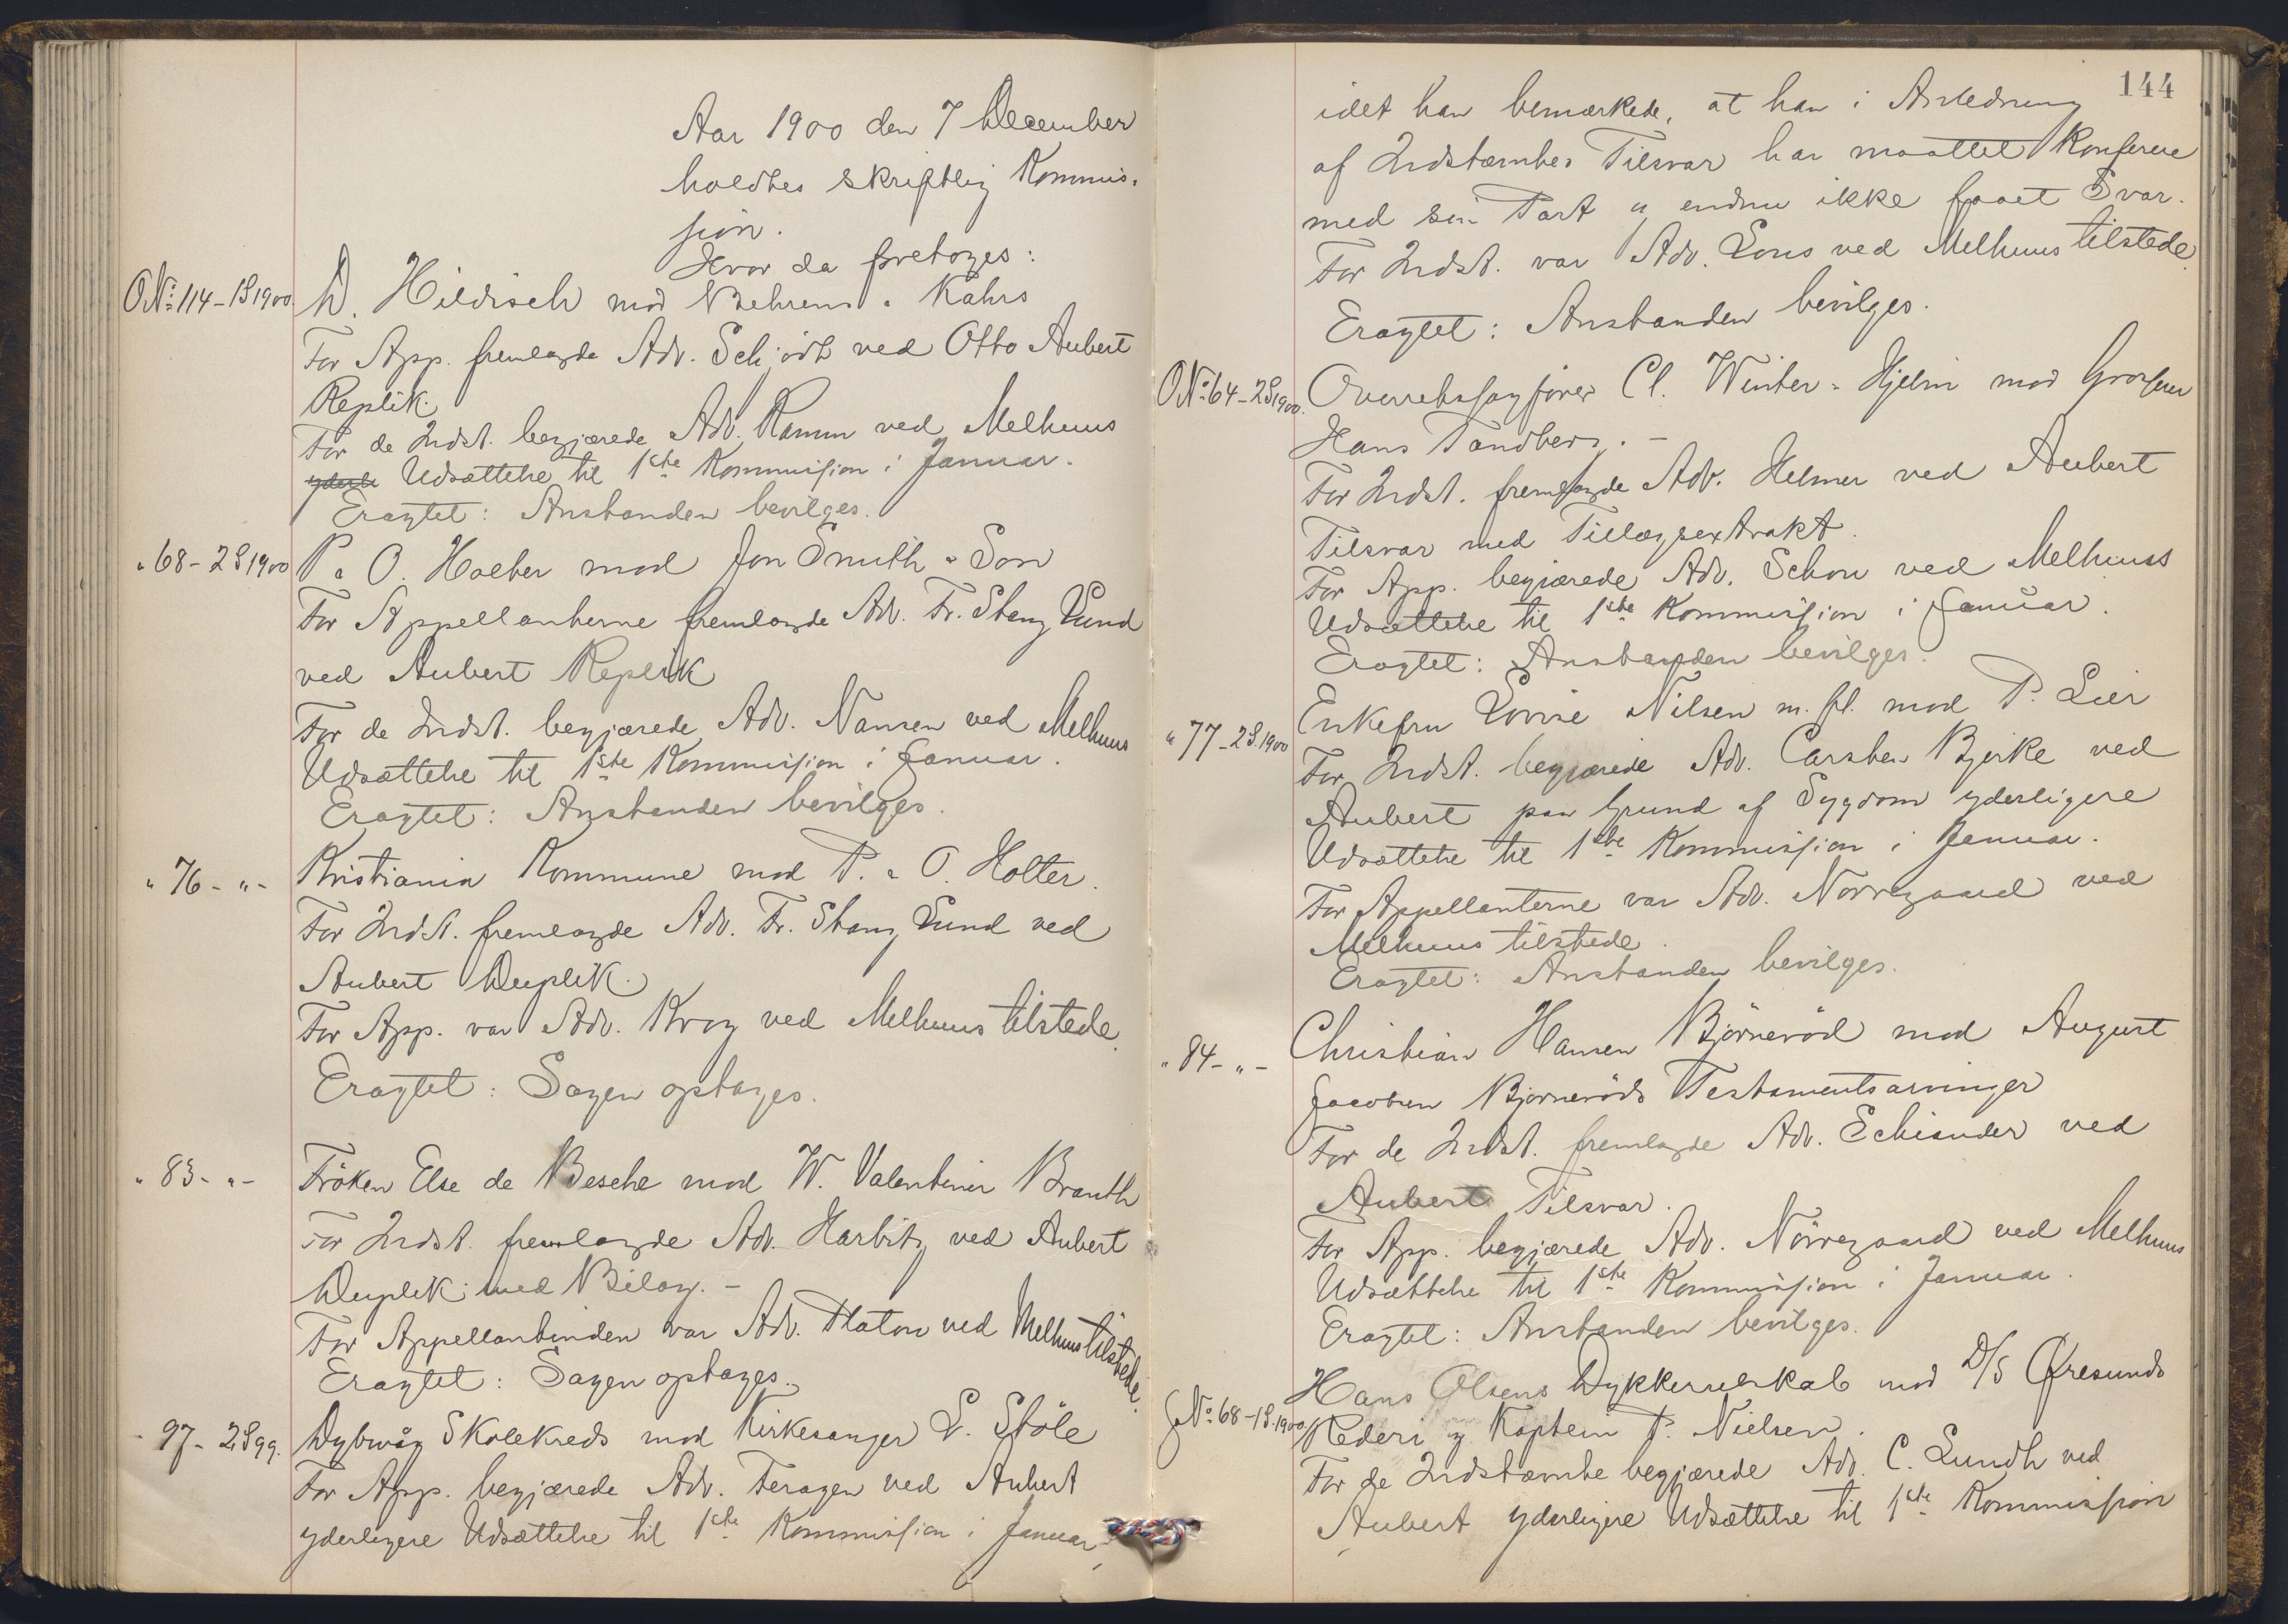 Aar 1900 den 7 December
holdtes skriftlig Kommis-
sion.
Hvor da foretoges:
O No 114 - 1S 1900. D. Hildisch mod Behrens & Kahrs
For App. fremlagde Adv. Schjødt ved Otto Aubert
Replik.
For de Indst. begjærede Adv. Ramm ved Melhuus
yderli Udsættelse til 1ste Kommission i Januar.
Eragtet: Anstanden bevilges.
" 68 - 2S 1900 P. & O. Holter mod Jon Smith & Son
For Appellanterne fremlagde Adv. Fr. Stang Lund
ved Aubert Replik
For de Indst. begjærede Adv. Nansen ved Melhuus
Udsættelse til 1ste Kommission i Januar.
Eragtet: Anstanden bevilges.
" 76 - " - Kristiania Kommune mod P. & O. Holter.
For Indst. fremlagde Adv. Fr. Stang Lund ved
Aubert Duplik.
For App. var Adv. Krog ved Melhuus tilstede.
Eragtet: Sagen optages.
" 83 - " - Frøken Else de Besche mod W. Valentiner Branth
For Indst. fremlagde Adv. Harbitz ved Aubert
Duplik med Bilag. -
For Appellantinden var Adv. Platou ved Melhuus tilstede.
Eragtet: Sagen optages.
" 97 - 2S 99. Dybvåg Skolekreds mod Kirkesanger L. Støle
For App. begjærede Adv. Feragen ved Aubert
yderligere Udsættelse til 1ste Kommission i Januar,
144
idet han bemærkede, at han i Anledning
af Indstæmtes Tilsvar har maattet konferere
med sin Part og endnu ikke faaet Svar.
For Indst. var Adv. Lous ved Melhuus tilstede.
Eragtet: Anstanden bevilges.
O No 64 - 2S 1900. Overretssagfører Cl. Winter-Hjelm mod Grosserer
Hans Tandberg. -
For Indst. fremlagde Adv. Helmer ved Aubert
Tilsvar med Tillægsextrakt.
For App. begjærede Adv. Schou ved Melhuus
Udsættelse til 1ste Kommission i Januar.
Eragtet: Anstanden bevilges.
" 77 - 2S. 1900 Enkefru Lovise Nilsen m. fl. mod P. Lier
For Indst. begjærede Adv. Carsten Bjerke ved
Aubert paa Grund af Sygdom yderligere
Udsættelse til 1ste Kommission i Januar.
For Appellanterne var Adv. Nørregaard ved
Melhuus tilstede.
Eragtet: Anstanden bevilges.
" 84 - " - Christian Hansen Bjørnerød mod August
Jacobsen Bjørnerøds Testamentsarvinger
For de Indst. fremlagde Adv. Schiander ved
Aubert Tilsvar.
For App. begjærede Adv. Nørregaard ved Melhuus
Udsættelse til 1ste Kommission i Januar.
Eragtet: Anstanden bevilges.
J No 68 - 1S. 1900. Hans Olsens Dykkerselskab mod D/S Øresunds
Rederi og Kaptein P. Nielsen.
For de Indstæmte begjærede Adv. C. Lundh ved
Aubert yderligere Udsættelse til 1ste Kommission